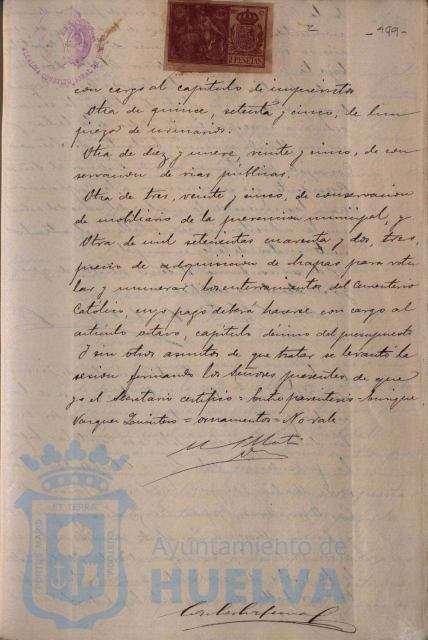 - 499 -
ALCALDIA CONSTITUCIONAL DE
3 PESETAS
con cargo al capítulo de imprevistos
Otra de quince, setenta y cinco, de lim
pieza de urinarios.
Otra de diez y nueve, veinte y cinco, de con
servacion de vias públicas.
Otra de tres, veinte y cinco, de conservacion
de mobiliario de la prevencion municipal, y
Otra de mil setecientas cuarenta y dos, tres,
precio de adquisicion de chapas para rotu
lar y numerar los enterramientos del Cementerio
Católico, cuyo pago deberá hacerse con cargo al
artículo octavo, capítulo décimo del presupuesto
Y sin otros asuntos de que tratar se levantó la
sesion firmando los Señores presentes de que
yo el Secretario certifico = Entre parentesis = 
Vazquez Quintero = ornamentos = No vale
PORTUS MARIS
ET TERRÆ
CUSTODIA
Ayuntamiento de
HUELVA